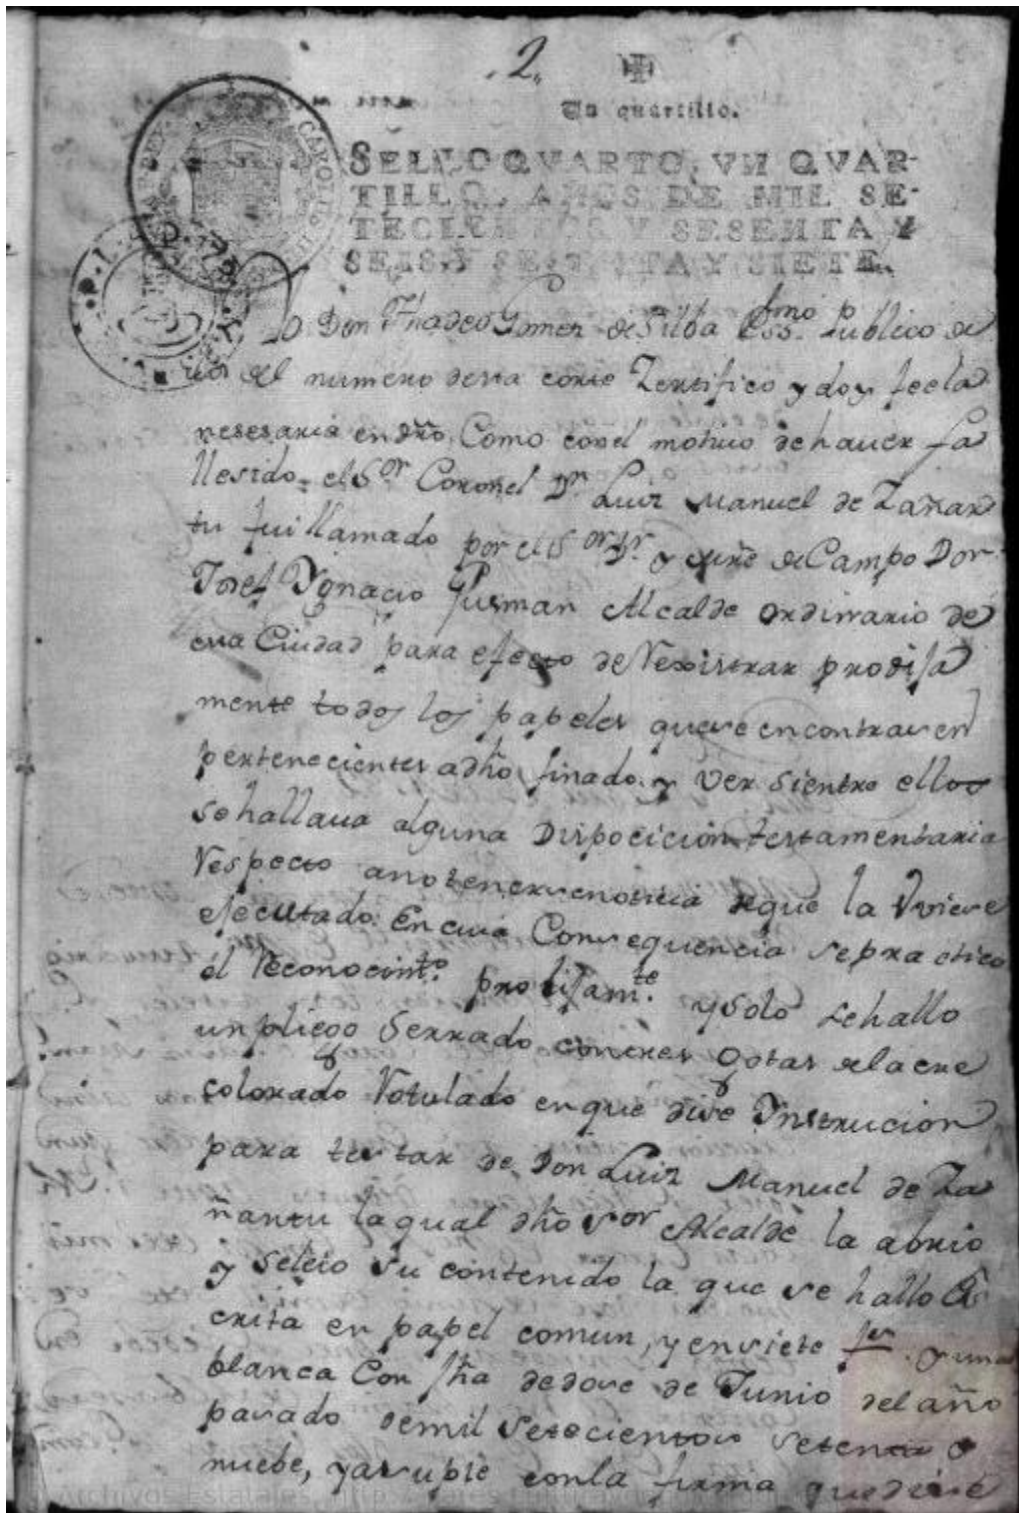 2.
Un quartillo.
SELLO QVARTO, VN QVAR-
TILLO, AÑOS DE MIL SE-
TECIENTOS Y SESENTA Y
SEIS, Y SESENTA Y SIETE.
Yo Don Thadeo Gomez de Silba Essno. Publico de
los del numero desta corte Zertifico y doy fee la
nesesaria en dro. Como con el motiuo de hauer fa
llesido el Sor Coronel Dn Luiz Manuel de Zañar
tu fui llamado por el Sor Dr. y de Campo Don
Josef Ygnacio Gusman Alcalde ordinario de
esta Ciudad para efecto de Rexistrar prolija
mente todos los papeles que se encontrasen
pertenecientes a dho finado y ver sientre ellos
se hallaua alguna Dispocicion testamentaria
Respecto a no tenerse noticia de que la Vviese
ejecutado: En cuia Consequencia se practico
el Reconocimto. prolijamte. y solo se hallo
un pliego Serrado con tres gotas de lacre
colorado Rotulado en que dise Instrucion
para testar de Don Luiz Manuel de Za
ñartu la qual dho Sor Alcalde la abrio
y Seleio su contenido la que se hallo Es
crita en papel comun, y en siete fs. y una
blanca Con fha de dose de Junio del año
pasado de mil Setecientos setenta y
nuebe, y asu pie con la firma que dise